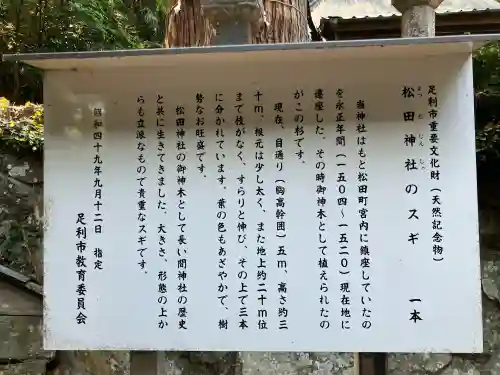 足利市重要文化財（天然記念物）
まつだじんじゃ
松田神社のスギ　一本
当神社はもと松田町宮内に鎮座していたの
を永正年間（一五〇四〜一五二〇）現在地に
遷座した。その時御神木として植えられたの
がこの杉です。
現在、目通り（胸高幹囲）五ｍ、高さ約三
十ｍ、根元は少し太く、また地上約二十ｍ位
まで枝がなく、すらりと伸び、その上で三本
に分かれています。葉の色もあざやかで、樹
勢なお旺盛です。
松田神社の御神木として長い間神社の歴史
と共に生きてきました。大きさ、形態の上か
らも立派なもので貴重なスギです。
昭和四十九年九月十二日　指定
足利市教育委員会